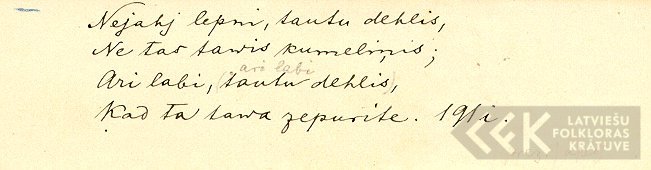 Nejahj lepni, tautu dehlis,
Ne tas tawis kumeliņis;
ari labi
Ari labi, tautu dehlis,
Kad ta tawa zepurite. 191i.
LATVIEŠU
FOLKLORAS
KRĀTUVE